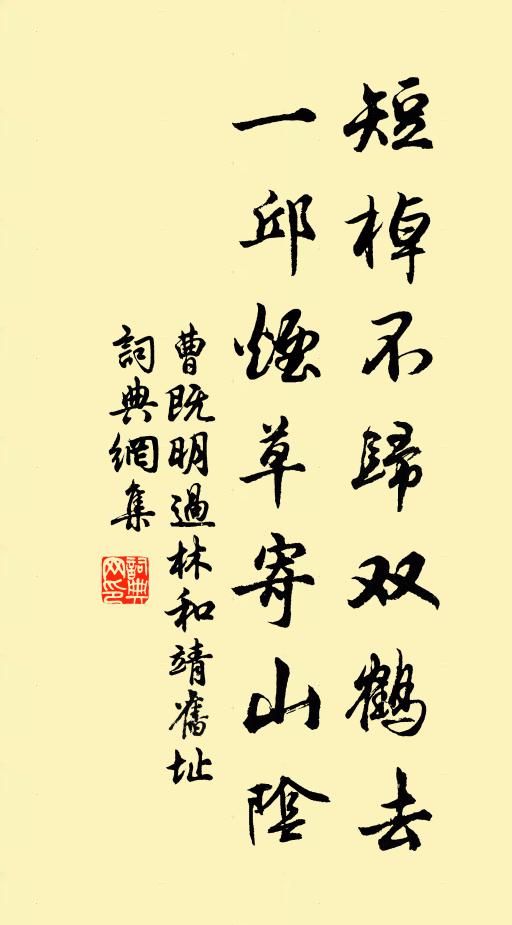 短棹不歸双鶴去
一邱煙草寄山陰
曹既明過林和靖舊址
詞典網集
詞典網印